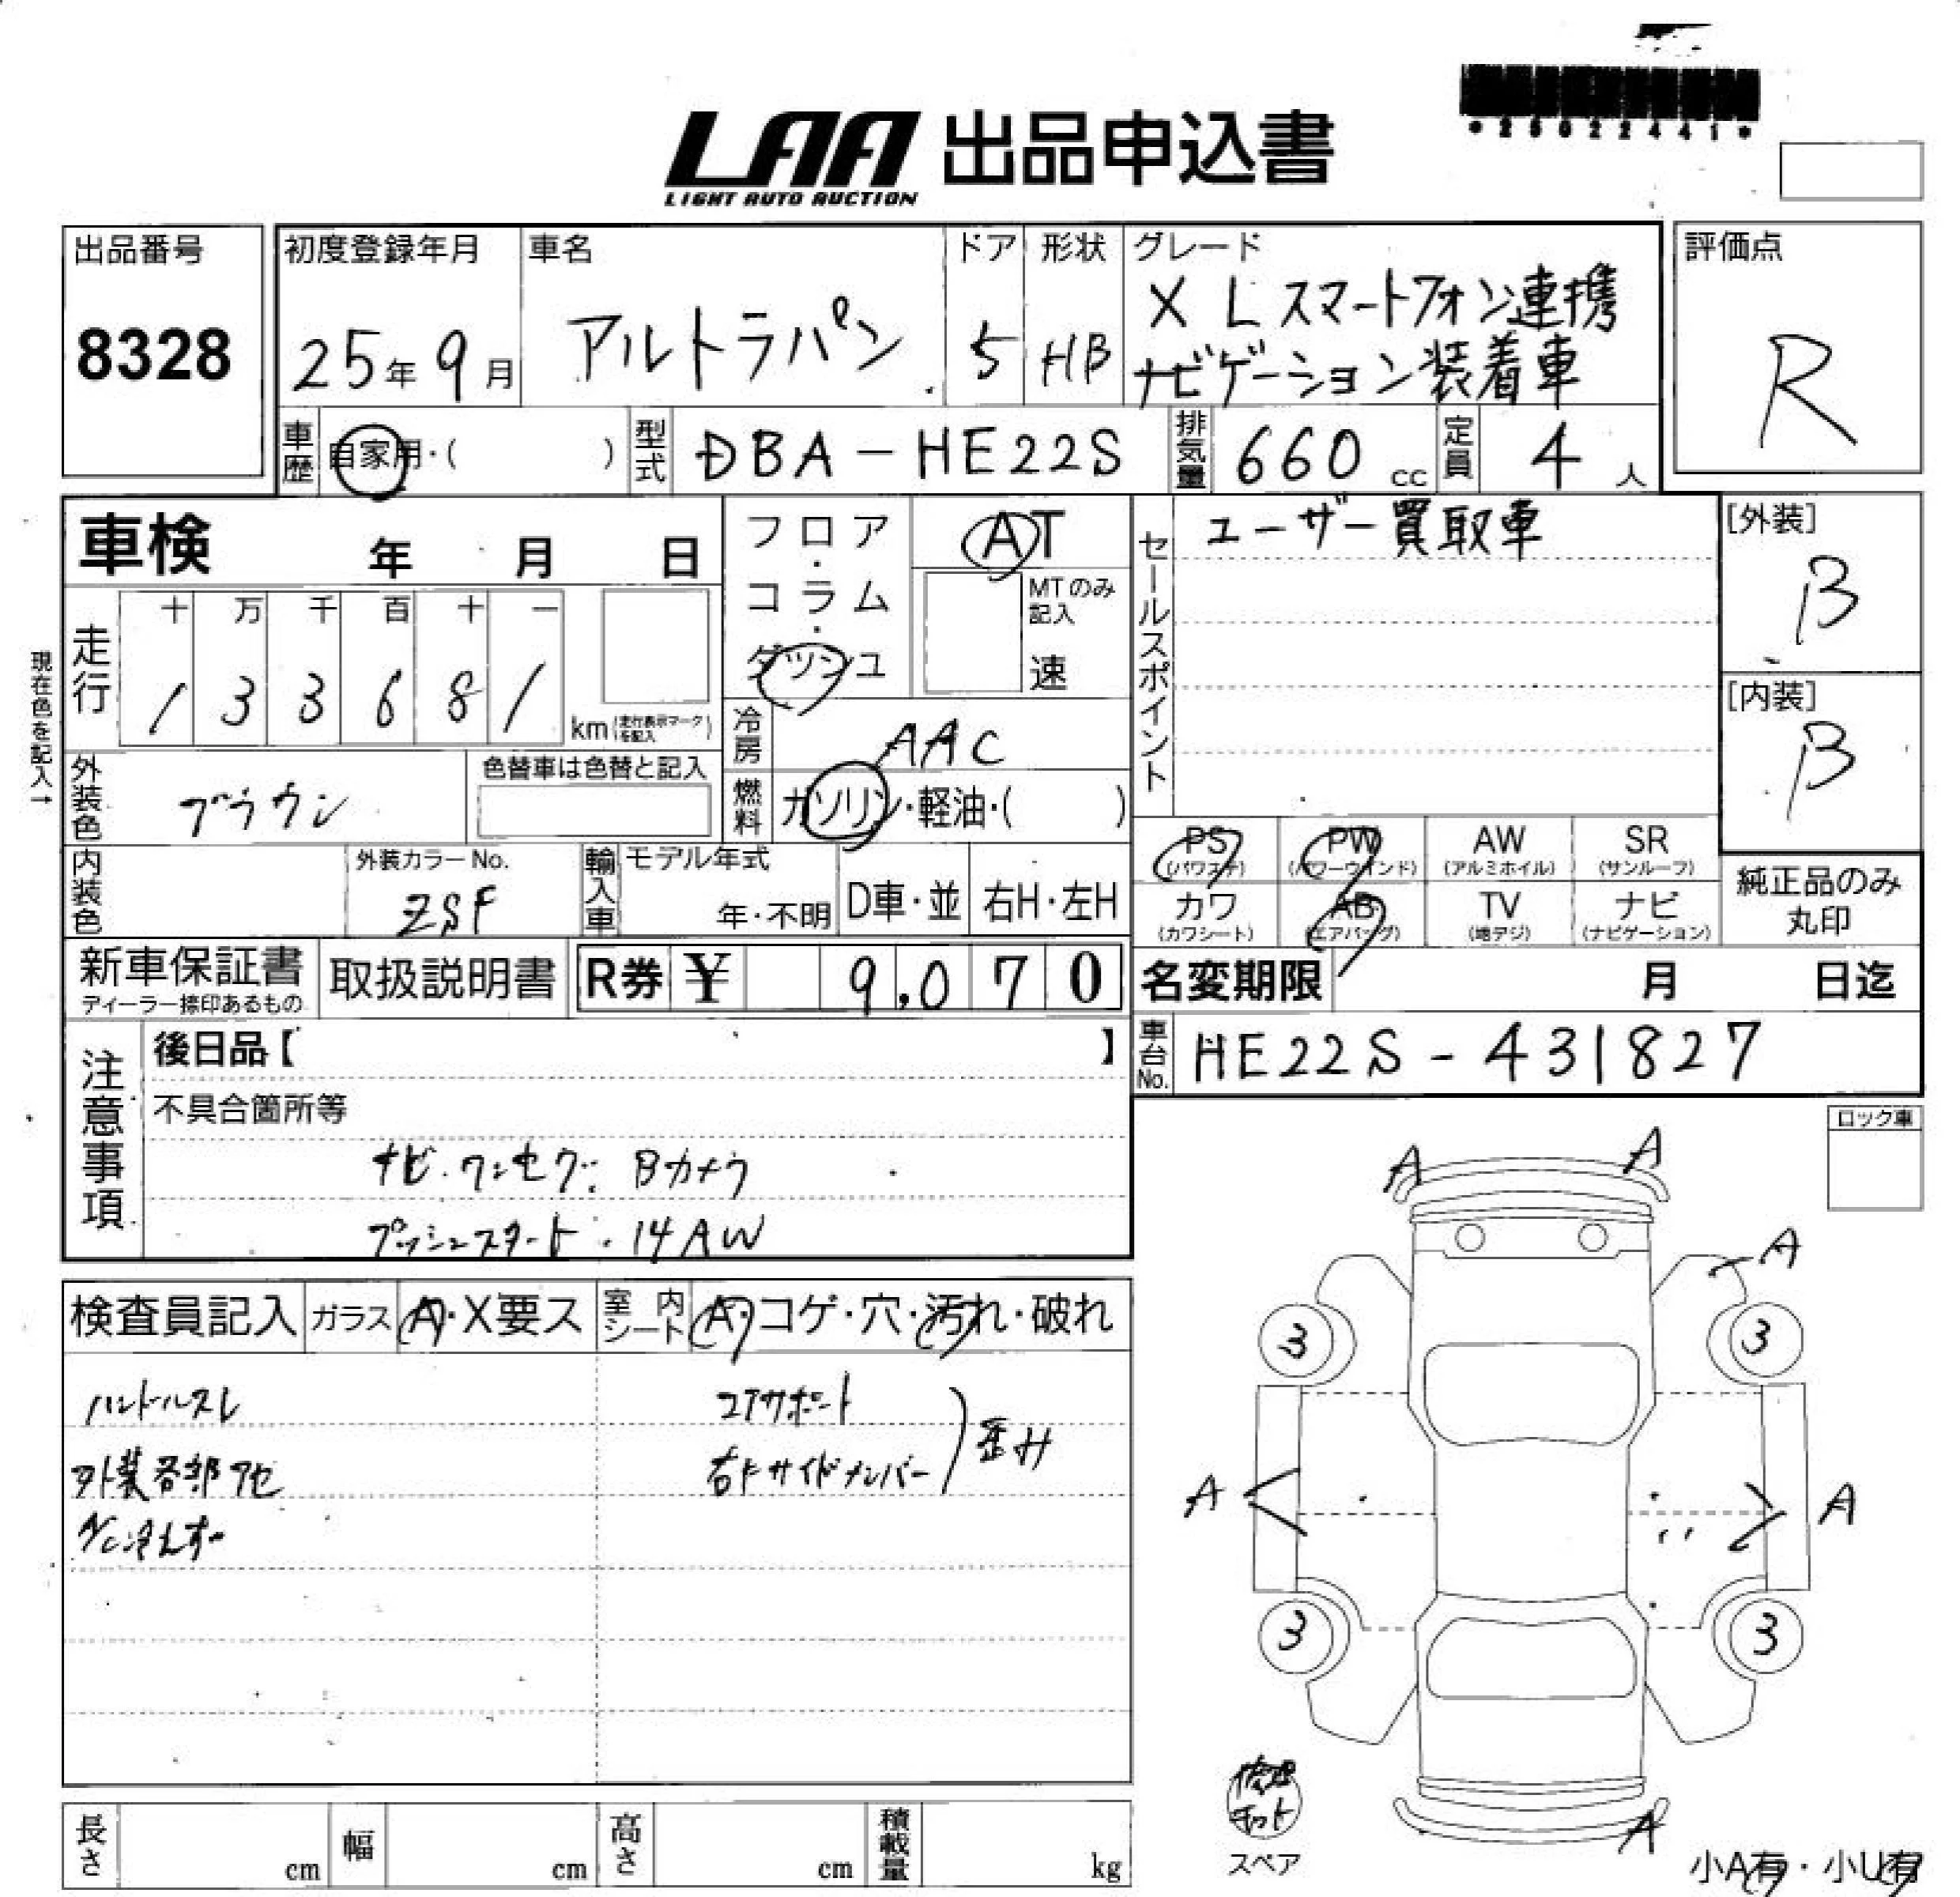 *25022441*
LAA 出品申込書
LIGHT AUTO AUCTION
出品番号
8328
初度登録年月
25年9月
車名
アルトラパン
ドア
5
形状
HB
グレード
X L スマートフォン連携
ナビゲーション装着車
評価点
R
車歴
自家用・( )
型式
DBA-HE22S
排気量
660 cc
定員
4 人
車検 年 月 日
フロア・コラム・ダッシュ
AT
MTのみ記入
速
セールスポイント
ユーザー買取車
[外装]
B
[内装]
B
現在色を記入→
走行
十 万 千 百 十 一
1 3 3 6 8 1
km (走行表示マークを記入)
冷房
AAC
外装色
ブラウン
色替車は色替と記入
燃料
ガソリン・軽油・( )
PS (パワステ)
PW (パワーウインド)
AW (アルミホイル)
SR (サンルーフ)
カワ (カワシート)
AB (エアバッグ)
TV (地デジ)
ナビ (ナビゲーション)
純正品のみ
丸印
内装色
外装カラーNo.
ZSF
輸入車
モデル年式
年・不明
D車・並
右H・左H
新車保証書
ディーラー捺印あるもの
取扱説明書
R券 ¥ 9,070
名変期限 月 日迄
車台No.
HE22S-431827
注意事項
後日品【 】
不具合箇所等
ナビ・ワンセグ・Bカメラ
プッシュスタート・14AW
ロック車
検査員記入
ガラス
A・X要ス
室内シート
A・コゲ・穴・汚れ・破れ
ハンドルスレ
外装各部アセ
A/C冷えず
コアサポート
右Fサイドメンバー
歪み
A
A
A
3
3
A
A
3
3
A
修理キット
スペア
小A有・小U有
長さ cm
幅 cm
高さ cm
積載量 kg